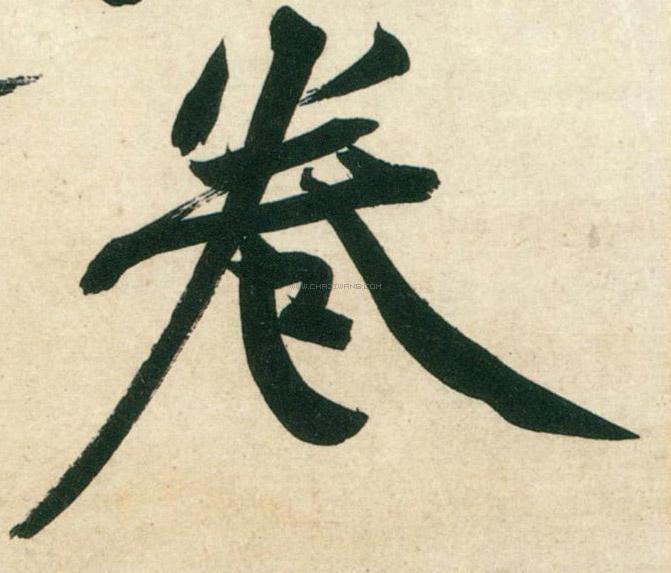 卷
WWW.CHAZIWANG.COM